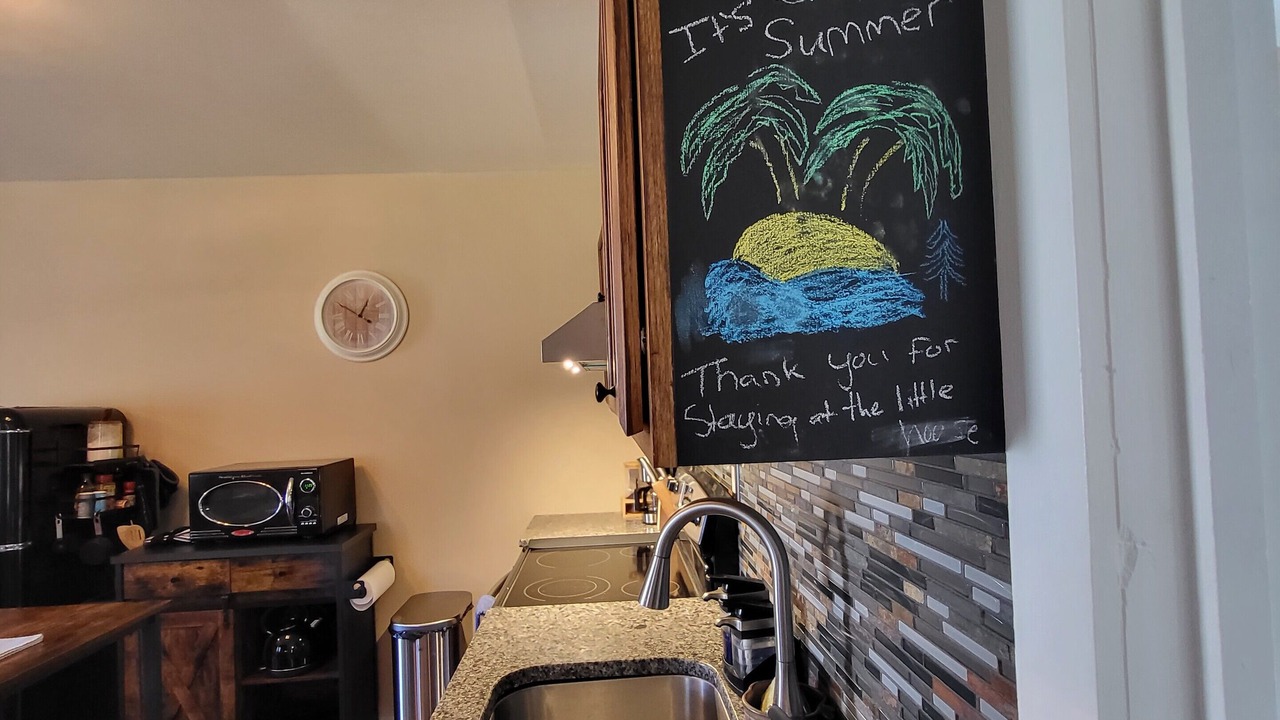 It's
Summer
Thank you for
Staying at the little